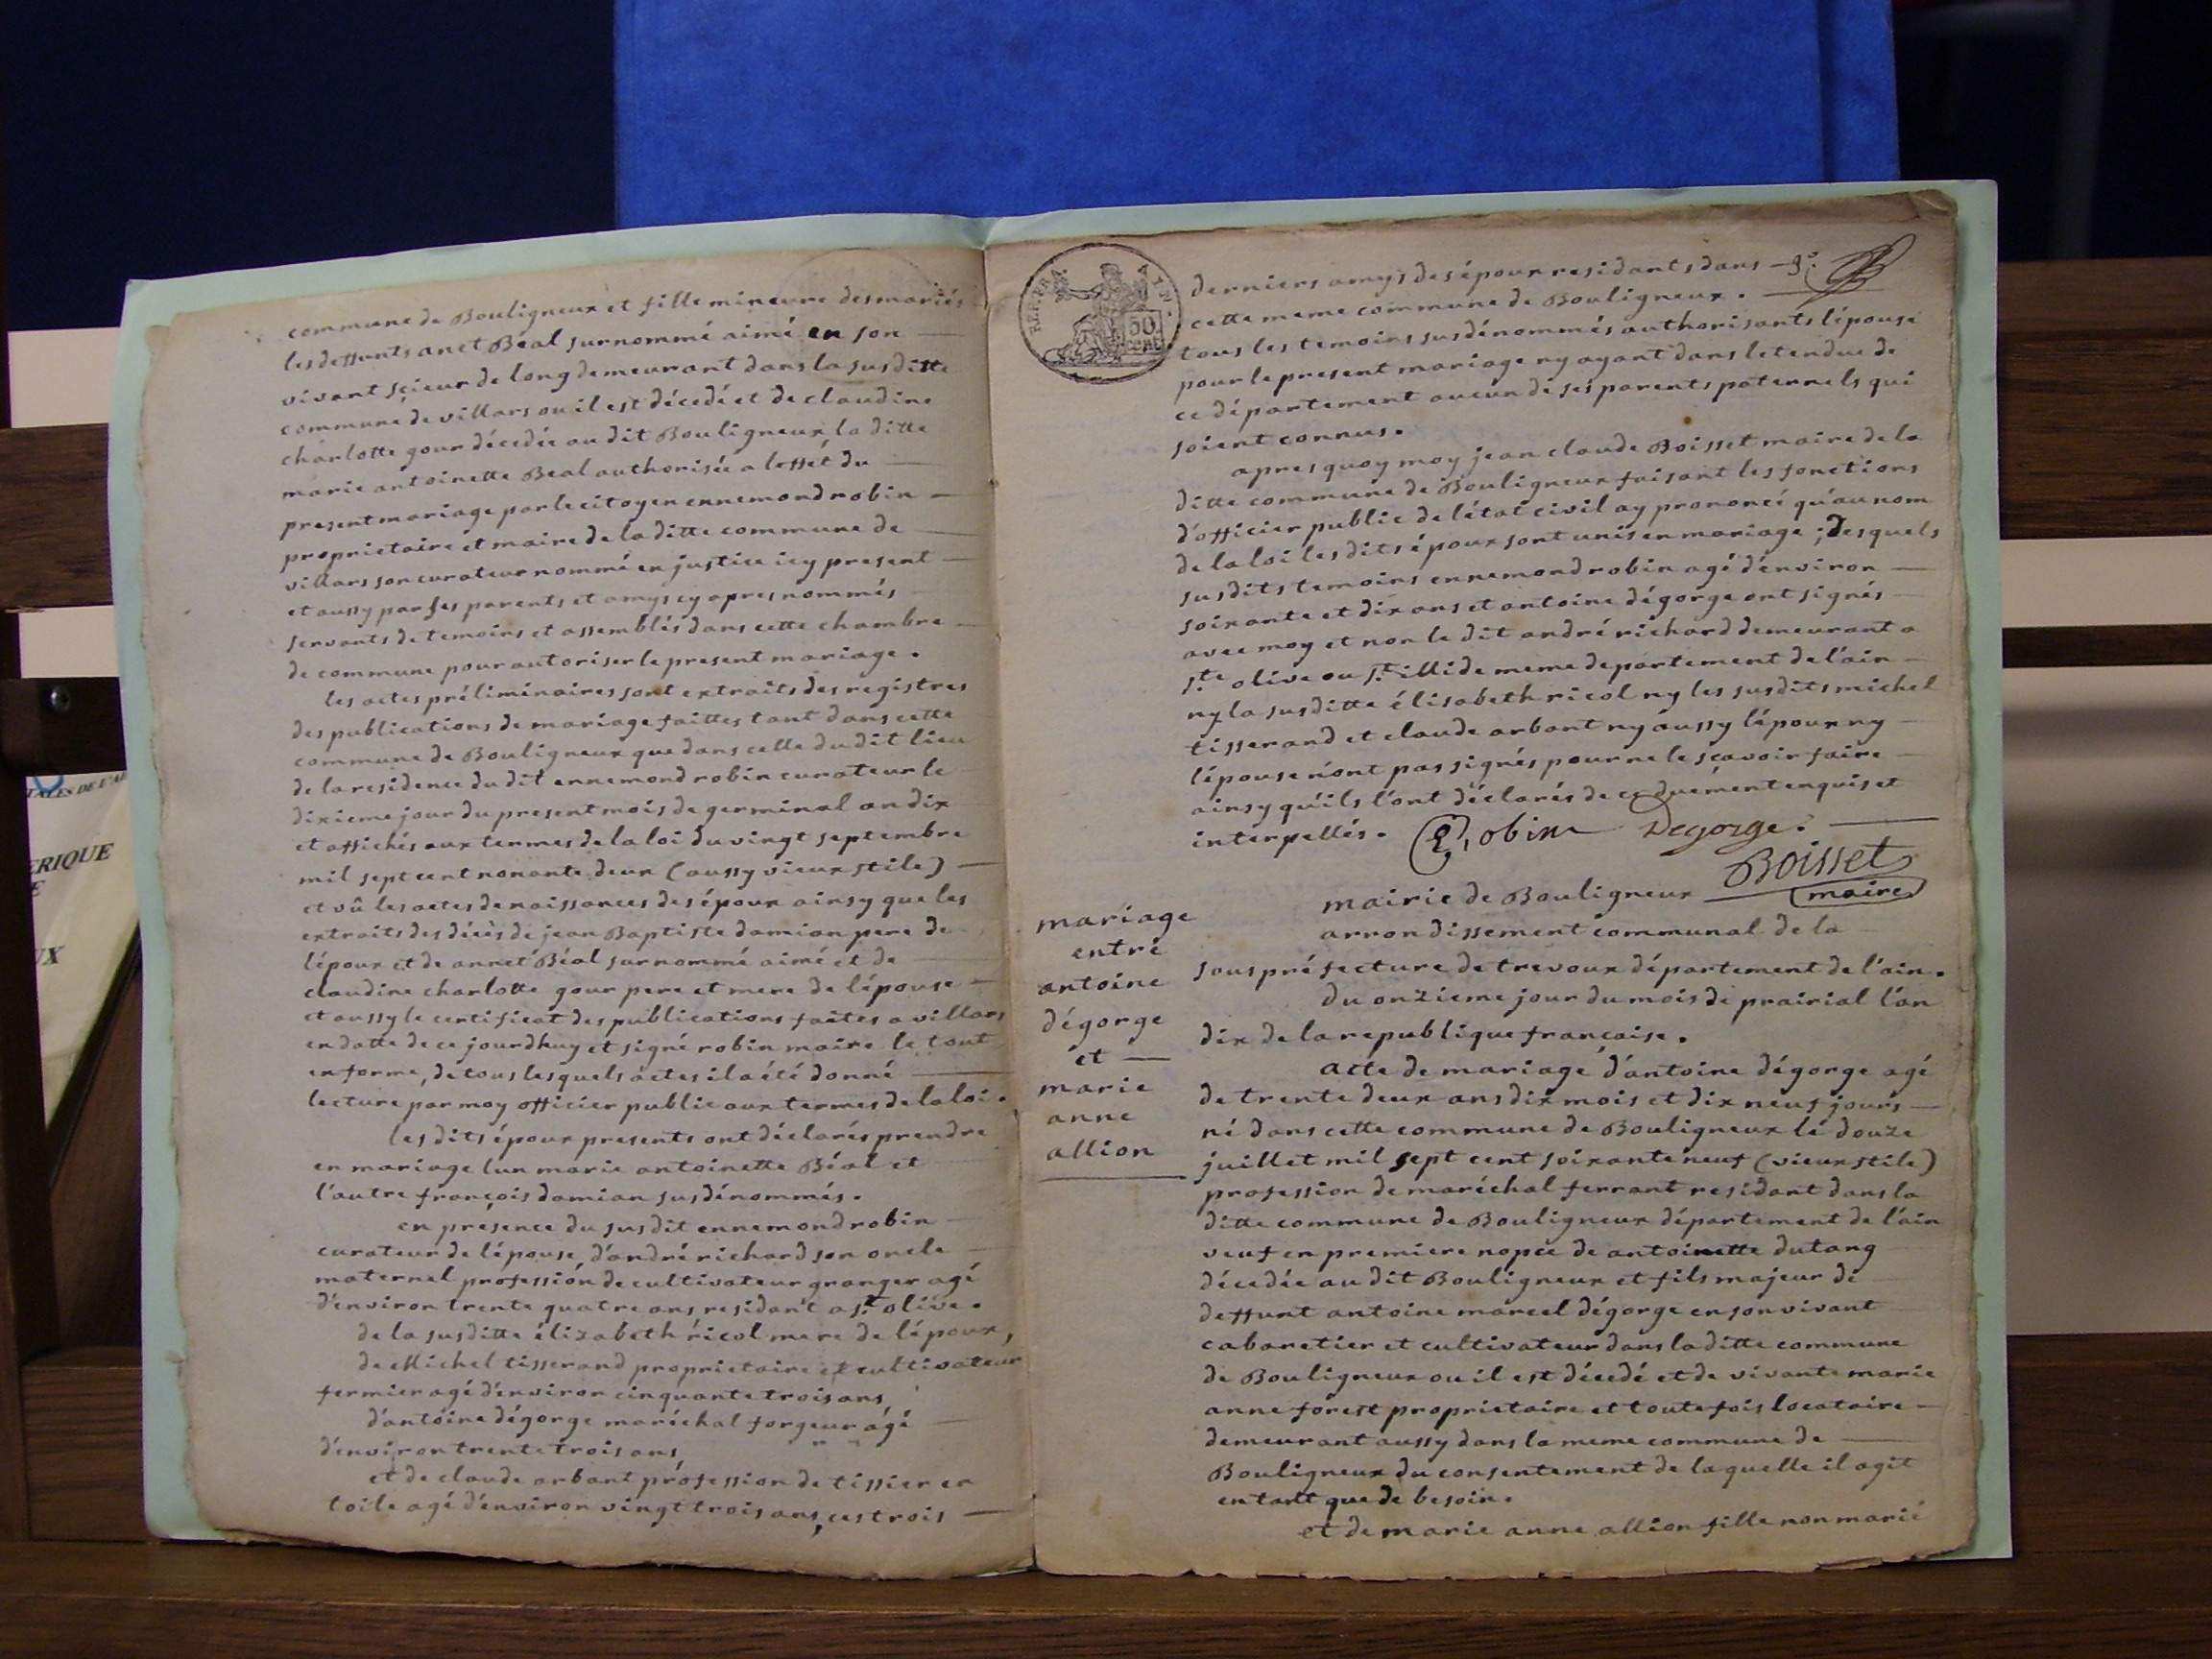 commune de Bouligneux et fille mineure des mariés
les deffunts anet Béal surnommé aimé en son
vivant scieur de long demeurant dans la susditte
commune de villars ou il est décedé et de claudine
charlotte gour décedée au dit Bouligneux, la ditte
marie antoinette Beal authorisée a l'effét du
present mariage par le citoyen ennemond robin
proprietaire et maire de la ditte commune de
villars son curateur nommé en justice icy present
et aussy par ses parents et amys cy apres nommés
servants de temoins et assemblés dans cette chambre
de commune pour autoriser le present mariage.
les actes préliminaires sont extraits des registres
des publications de mariage faittes tant dans cette
commune de Bouligneux que dans celle du dit lieu
de la residence du dit ennemond robin curateur le
dixieme jour du present mois de germinal an dix
et affichés aux termes de la loi du vingt septembre
mil sept cent nonante deux (aussy vieux stile)
et vû les actes de naissances des époux ainsy que les
extraits des décès de jean Baptiste damian pere de
l'époux et de annet Béal surnommé aimé et de
claudine charlotte gour pere et mere de l'épouse
et aussy le certificat des publications faites a villars
en datte de ce jourdhuy et signé robin maire le tout
en forme, de tous lesquels actes il a été donné
lecture par moy officier public aux termes de la loi.
les dits époux presents ont déclarés prendre
en mariage l'un marie antoinette Béal et
l'autre françois damian susdénommés.
en presence du susdit ennemond robin
curateur de l'épouse, d'andré richard son oncle
maternel profession de cultivateur granger agé
d'environ trente quatre ans residant a st. olive.
de la susditte élizabeth ricol mere de l'époux,
de Michel tisserand proprietaire et cultivateur
fermier agé d'environ cinquante trois ans,
d'antoine dégorge maréchal forgeur agé
d'environ trente trois ans,
et de claude arbant profession de tissier en
toile agé d'environ vingt trois ans, ces trois
REP. FRA.
50
CENT
derniers amys des époux residants dans
cette meme commune de Bouligneux.
tous les temoins susdénommés authorisants l'épouse
pour le present mariage ny ayant dans l'etendue de
ce département aucun de ses parents paternels qui
soient connus.
apres quoy moy jean claude Boisset maire de la
ditte commune de Bouligneux faisant les fonctions
d'officier public de l'état civil ay prononcé qu'au nom
de la loi les dits époux sont unis en mariage; desquels
susdits temoins ennemond robin agé d'environ
soixante et dix ans et antoine dégorge ont signés
avec moy et non le dit andré richard demeurant a
ste. olive ou st. illide meme departement de l'ain
ny la susditte élisabeth ricol ny les susdits michel
tisserand et claude arbant ny aussy l'époux ny
l'épouse n'ont pas signés pour ne le sçavoir faire
ainsy qu'ils l'ont déclarés de ce duement enquis et
interpellés. Robin Degorge.
Boisset
maire
mairie de Bouligneux
arrondissement communal de la
sous préfecture de trevoux département de l'ain.
du onzieme jour du mois de prairial l'an
dix de la republique française.
mariage
entre
antoine
dégorge
et
marie
anne
allion
acte de mariage d'antoine dégorge agé
de trente deux ans dix mois et dix neuf jours
né dans cette commune de Bouligneux le douze
juillet mil sept cent soixante neuf (vieux stile)
profession de maréchal ferrant residant dans la
ditte commune de Bouligneux département de l'ain
veuf en premiere nopce de antoinette dutang
décedée au dit Bouligneux et fils majeur de
deffunt antoine marcel dégorge en son vivant
cabaretier et cultivateur dans la ditte commune
de Bouligneux ou il est décedé et de vivante marie
anne forest proprietaire et toute fois locataire
demeurant aussy dans la meme commune de
Bouligneux du consentement de laquelle il agit
en tant que de besoin.
et de marie anne allion fille non marié